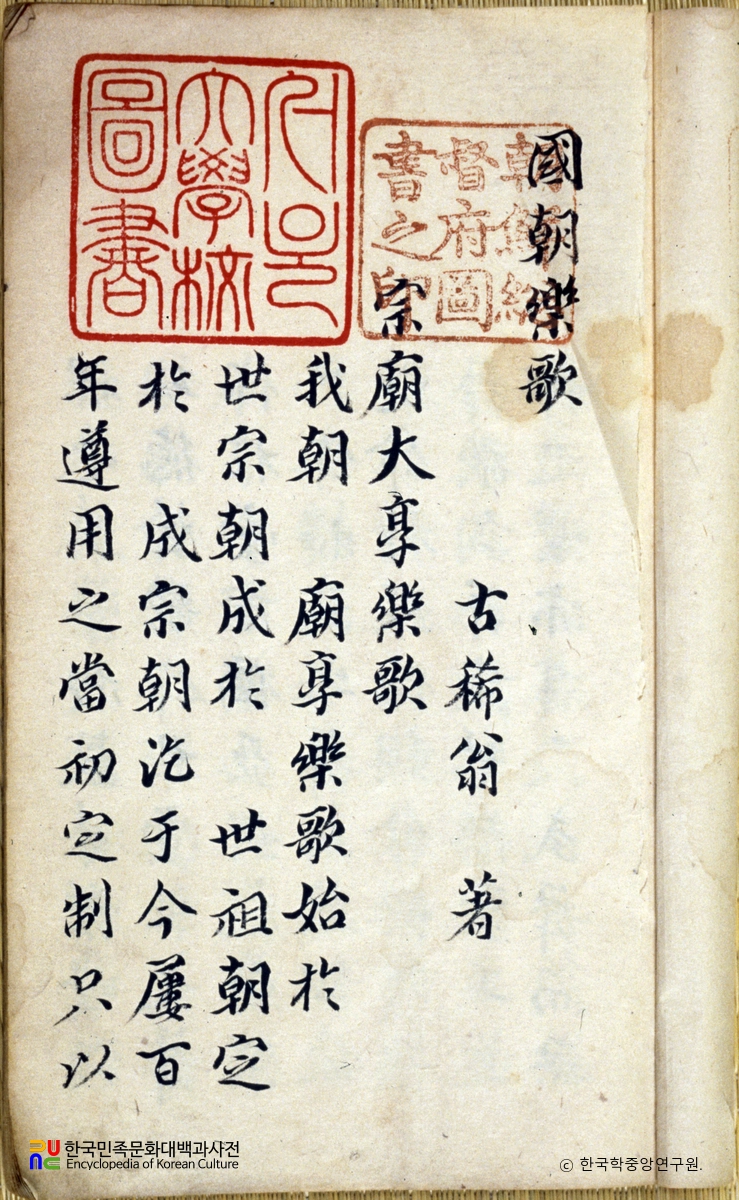 國朝樂歌
古稀翁 著
宗廟大享樂歌
我朝 廟享樂歌始於
世宗朝成於 世祖朝定
於 成宗朝汔于今屢百
年遵用之當初定制只以
朝鮮總
督府圖
書之印
서울
大學校
圖書
한국민족문화대백과사전
Encyclopedia of Korean Culture
© 한국학중앙연구원.